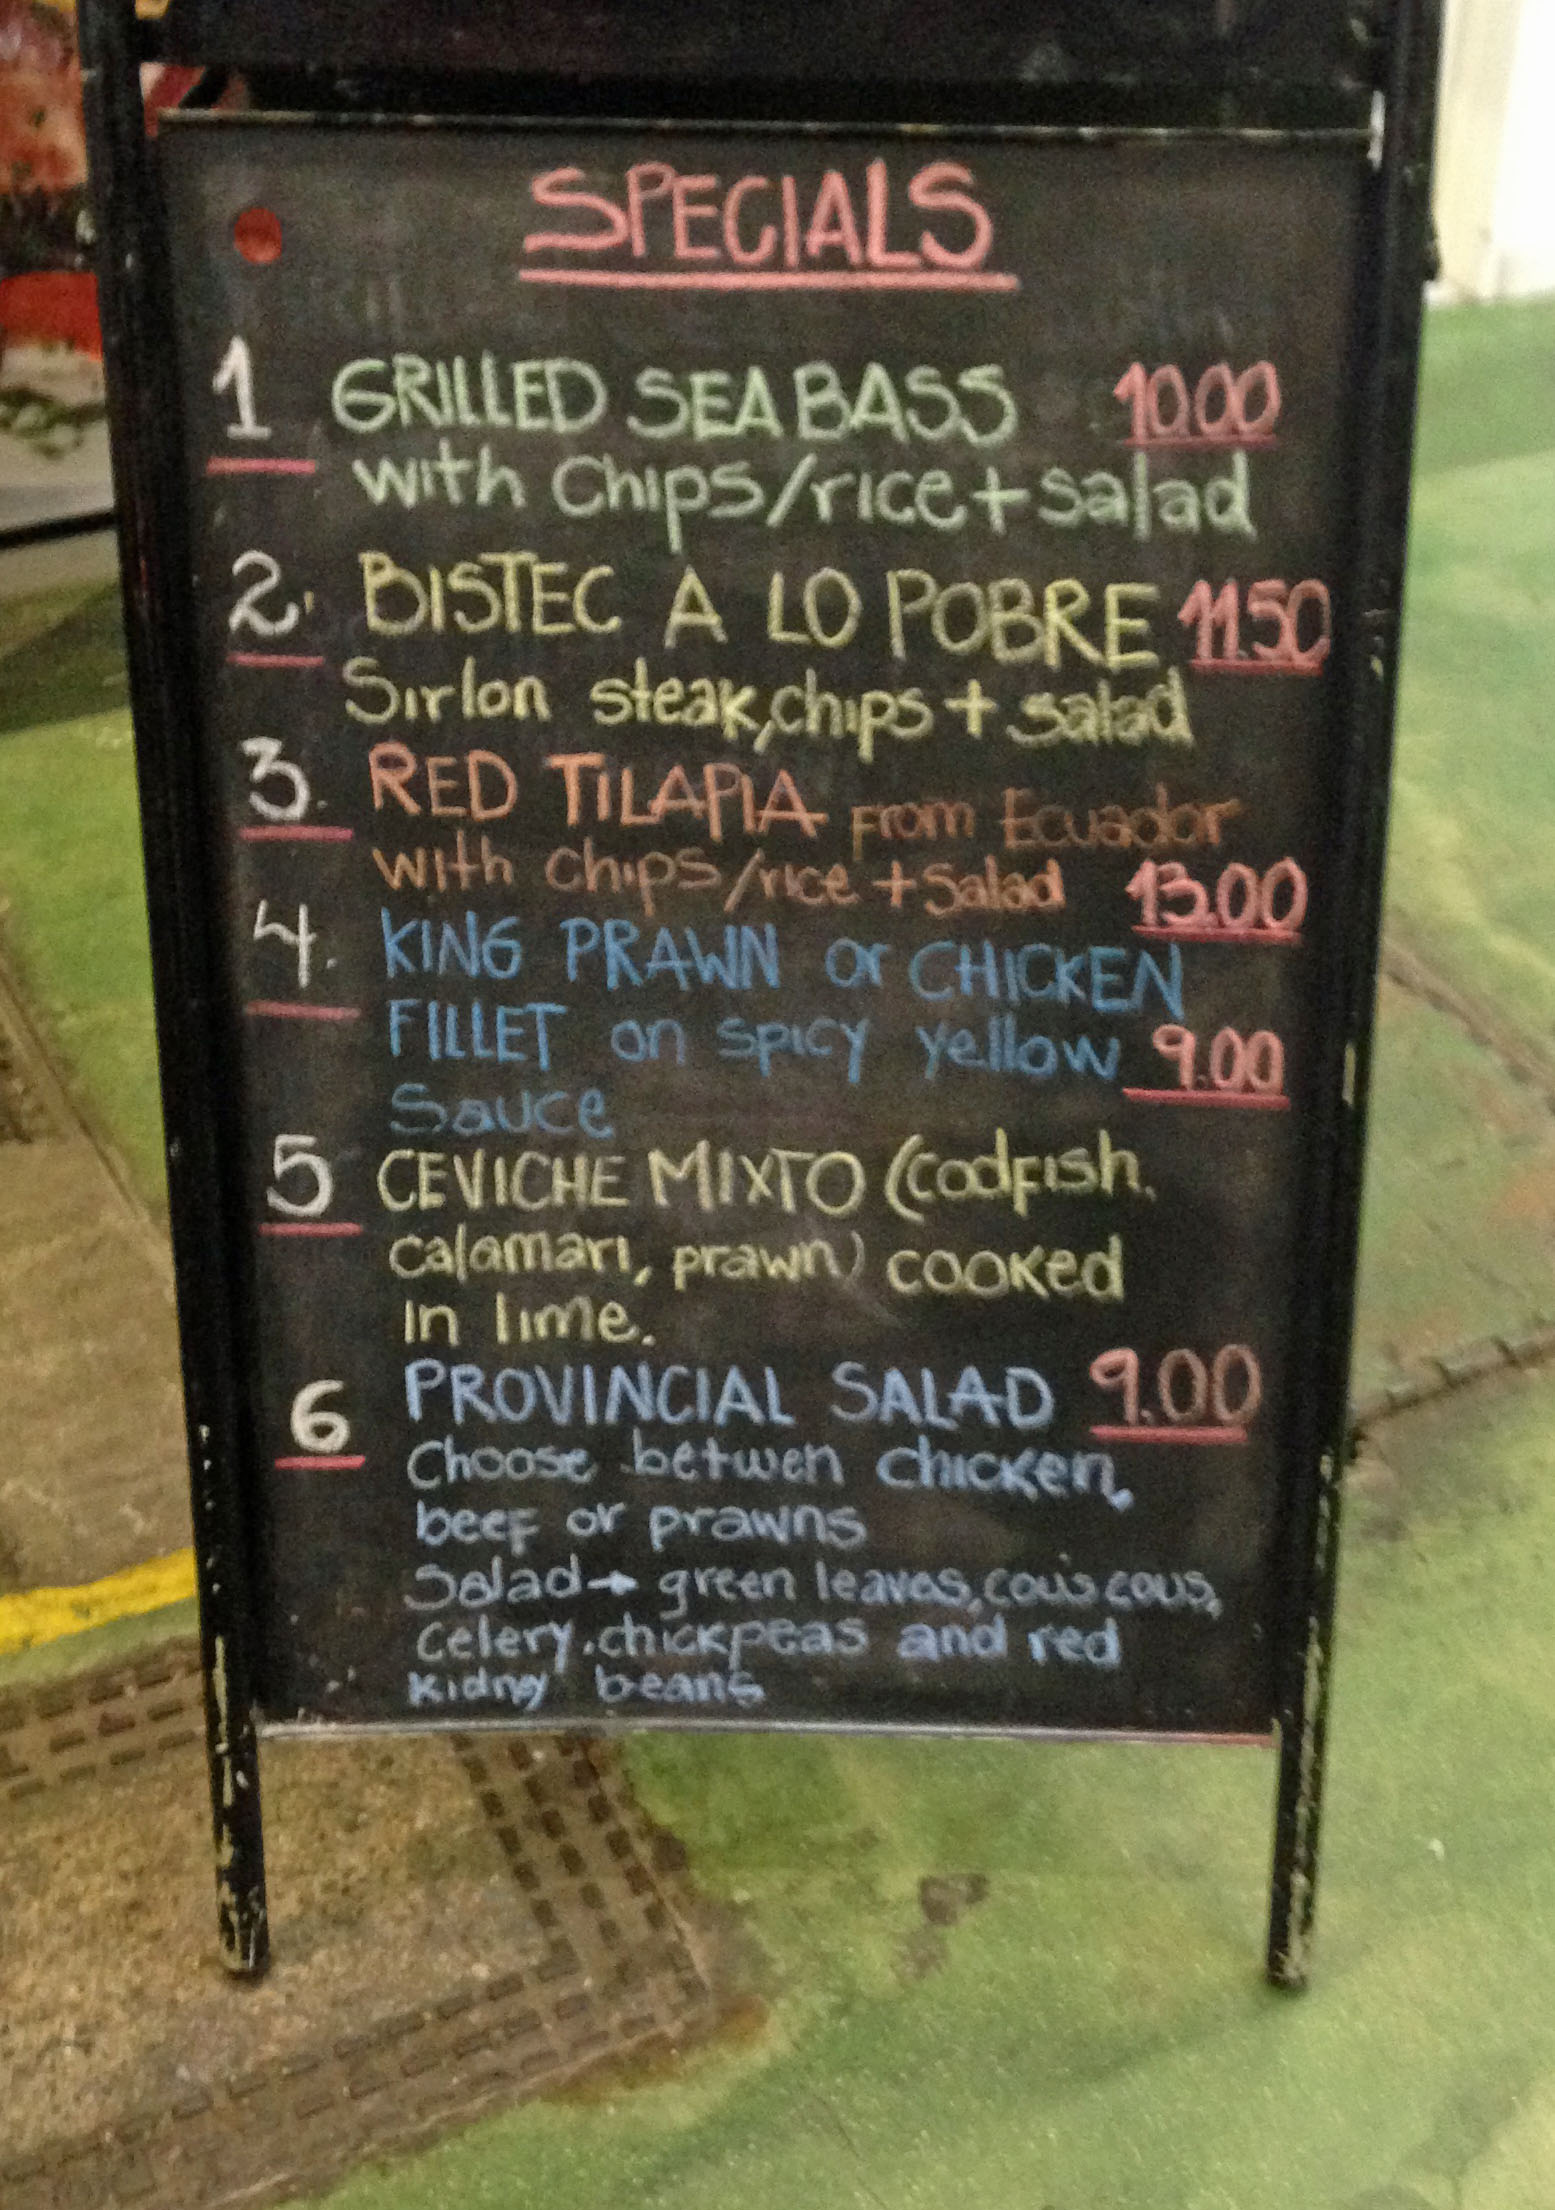 SPECIALS
1 GRILLED SEA BASS 10.00
with Chips/rice + salad
2. BISTEC A LO POBRE 11.50
Sirlon steak, chips + salad
3. RED TILAPIA From Ecuador
with chips/rice + Salad 13.00
4. KING PRAWN or CHICKEN
FILLET on spicy yellow 9.00
Sauce
5 CEVICHE MIXTO (codfish,
calamari, prawn) cooked
in lime.
6 PROVINCIAL SALAD 9.00
Choose betwen chicken,
beef or prawns
Salad → green leaves, cous cous,
Celery, chickpeas and red
kidny beans